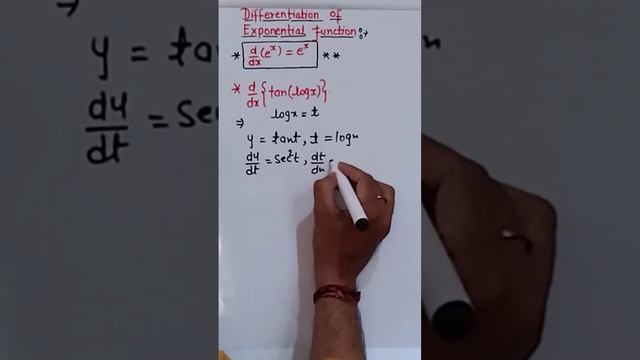 Differentiation of
Exponential function :→
* d/dx (eˣ) = eˣ **
* d/dx {tan(logx)}.
logx = t
⇒
y = tant, t = logx
dy/dt = sec²t, dt/dx =